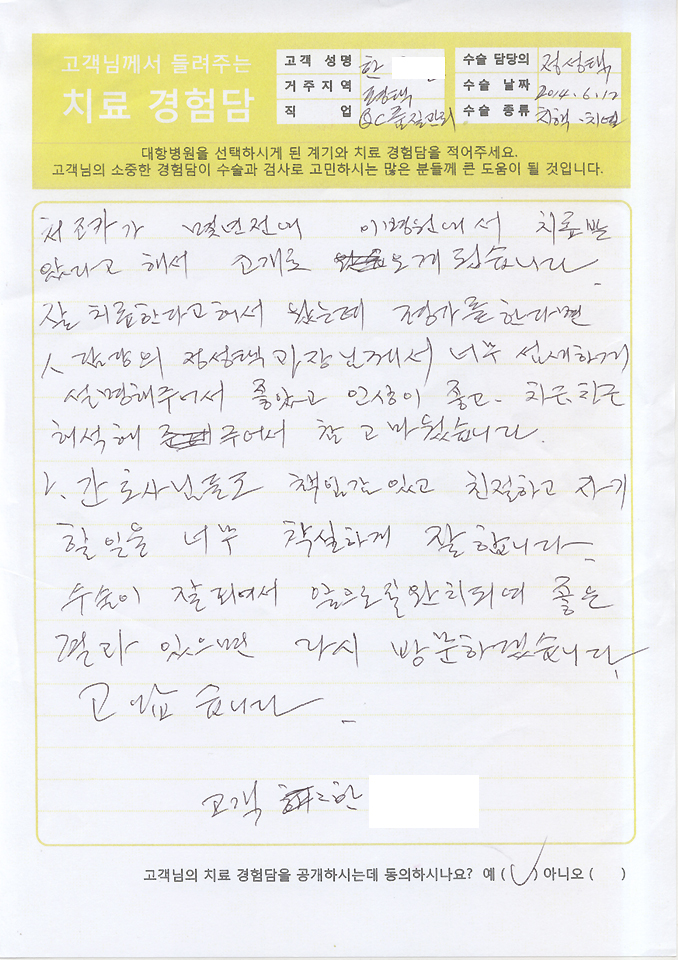 고객님께서 들려주는
치료 경험담
고객 성명 한
거주지역 평택
직 업 QC품질관리
수술 담당의 정성택
수술 날짜 2014.6.12
수술 종류 치핵.치열
대항병원을 선택하시게 된 계기와 치료 경험담을 적어주세요.
고객님의 소중한 경험담이 수술과 검사로 고민하시는 많은 분들께 큰 도움이 될 것입니다.
처조카가 몇년전에 이병원에서 치료받
았다고 해서 소개로 오게 됩습니다
잘 치료한다고해서 왔는데 평가를한다면
1. 담당의 정성택과장님께서 너무 섬세하게
설명해주어서 좋았고 인상이 좋고. 차근차근
해석해 주어서 참 고마웠습니다.
2. 간호사님들도 책임감있고 친절하고 자기
할일을 너무 착실하게 잘합니다
수술이 잘되어서 앞으로잘완치되여 좋은
결과 있으면 다시 방문하겠습니다.
고맙습니다
고객 한
고객님의 치료 경험담을 공개하시는데 동의하시나요? 예 (✓) 아니오 ( )